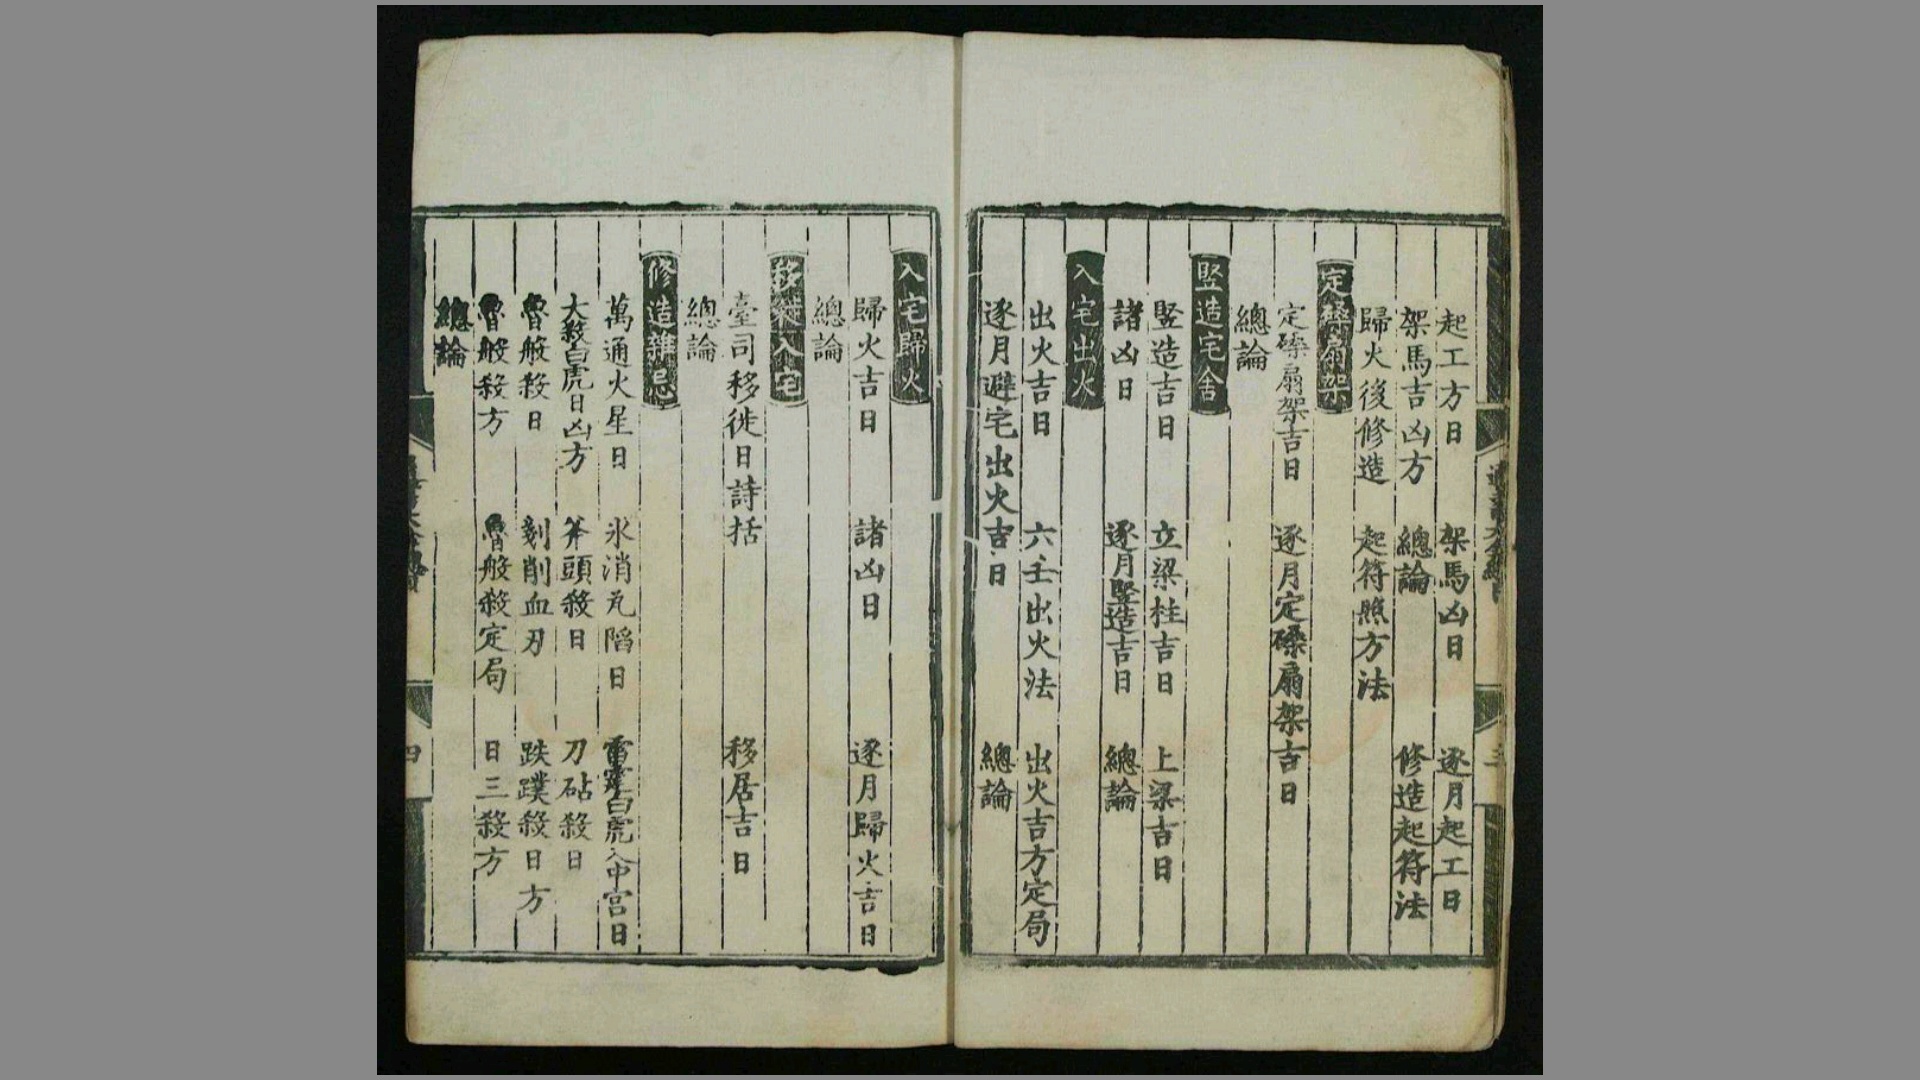 起工方日 架馬凶日 逐月起工日
架馬吉凶方 總論 修造起符法
歸火後修造 起符照方法
定磉扇架
定磉扇架吉日 逐月定磉扇架吉日
總論
竪造宅舍
竪造吉日 立梁柱吉日 上梁吉日
諸凶日 逐月竪造吉日 總論
入宅出火
出火吉日 六壬出火法 出火吉方定局
逐月避宅出火吉日 總論
入宅歸火
歸火吉日 諸凶日 逐月歸火吉日
總論
移徙入宅
臺司移徙日詩括 移居吉日
總論
修造雜忌
萬通火星日 氷消瓦陷日 雷霆白虎入中宮日
大殺白虎日凶方 斧頭殺日 刀砧殺日
魯般殺日 剗削血刃 跌蹼殺日方
魯般殺方 魯般殺定局 日三殺方
總論
四